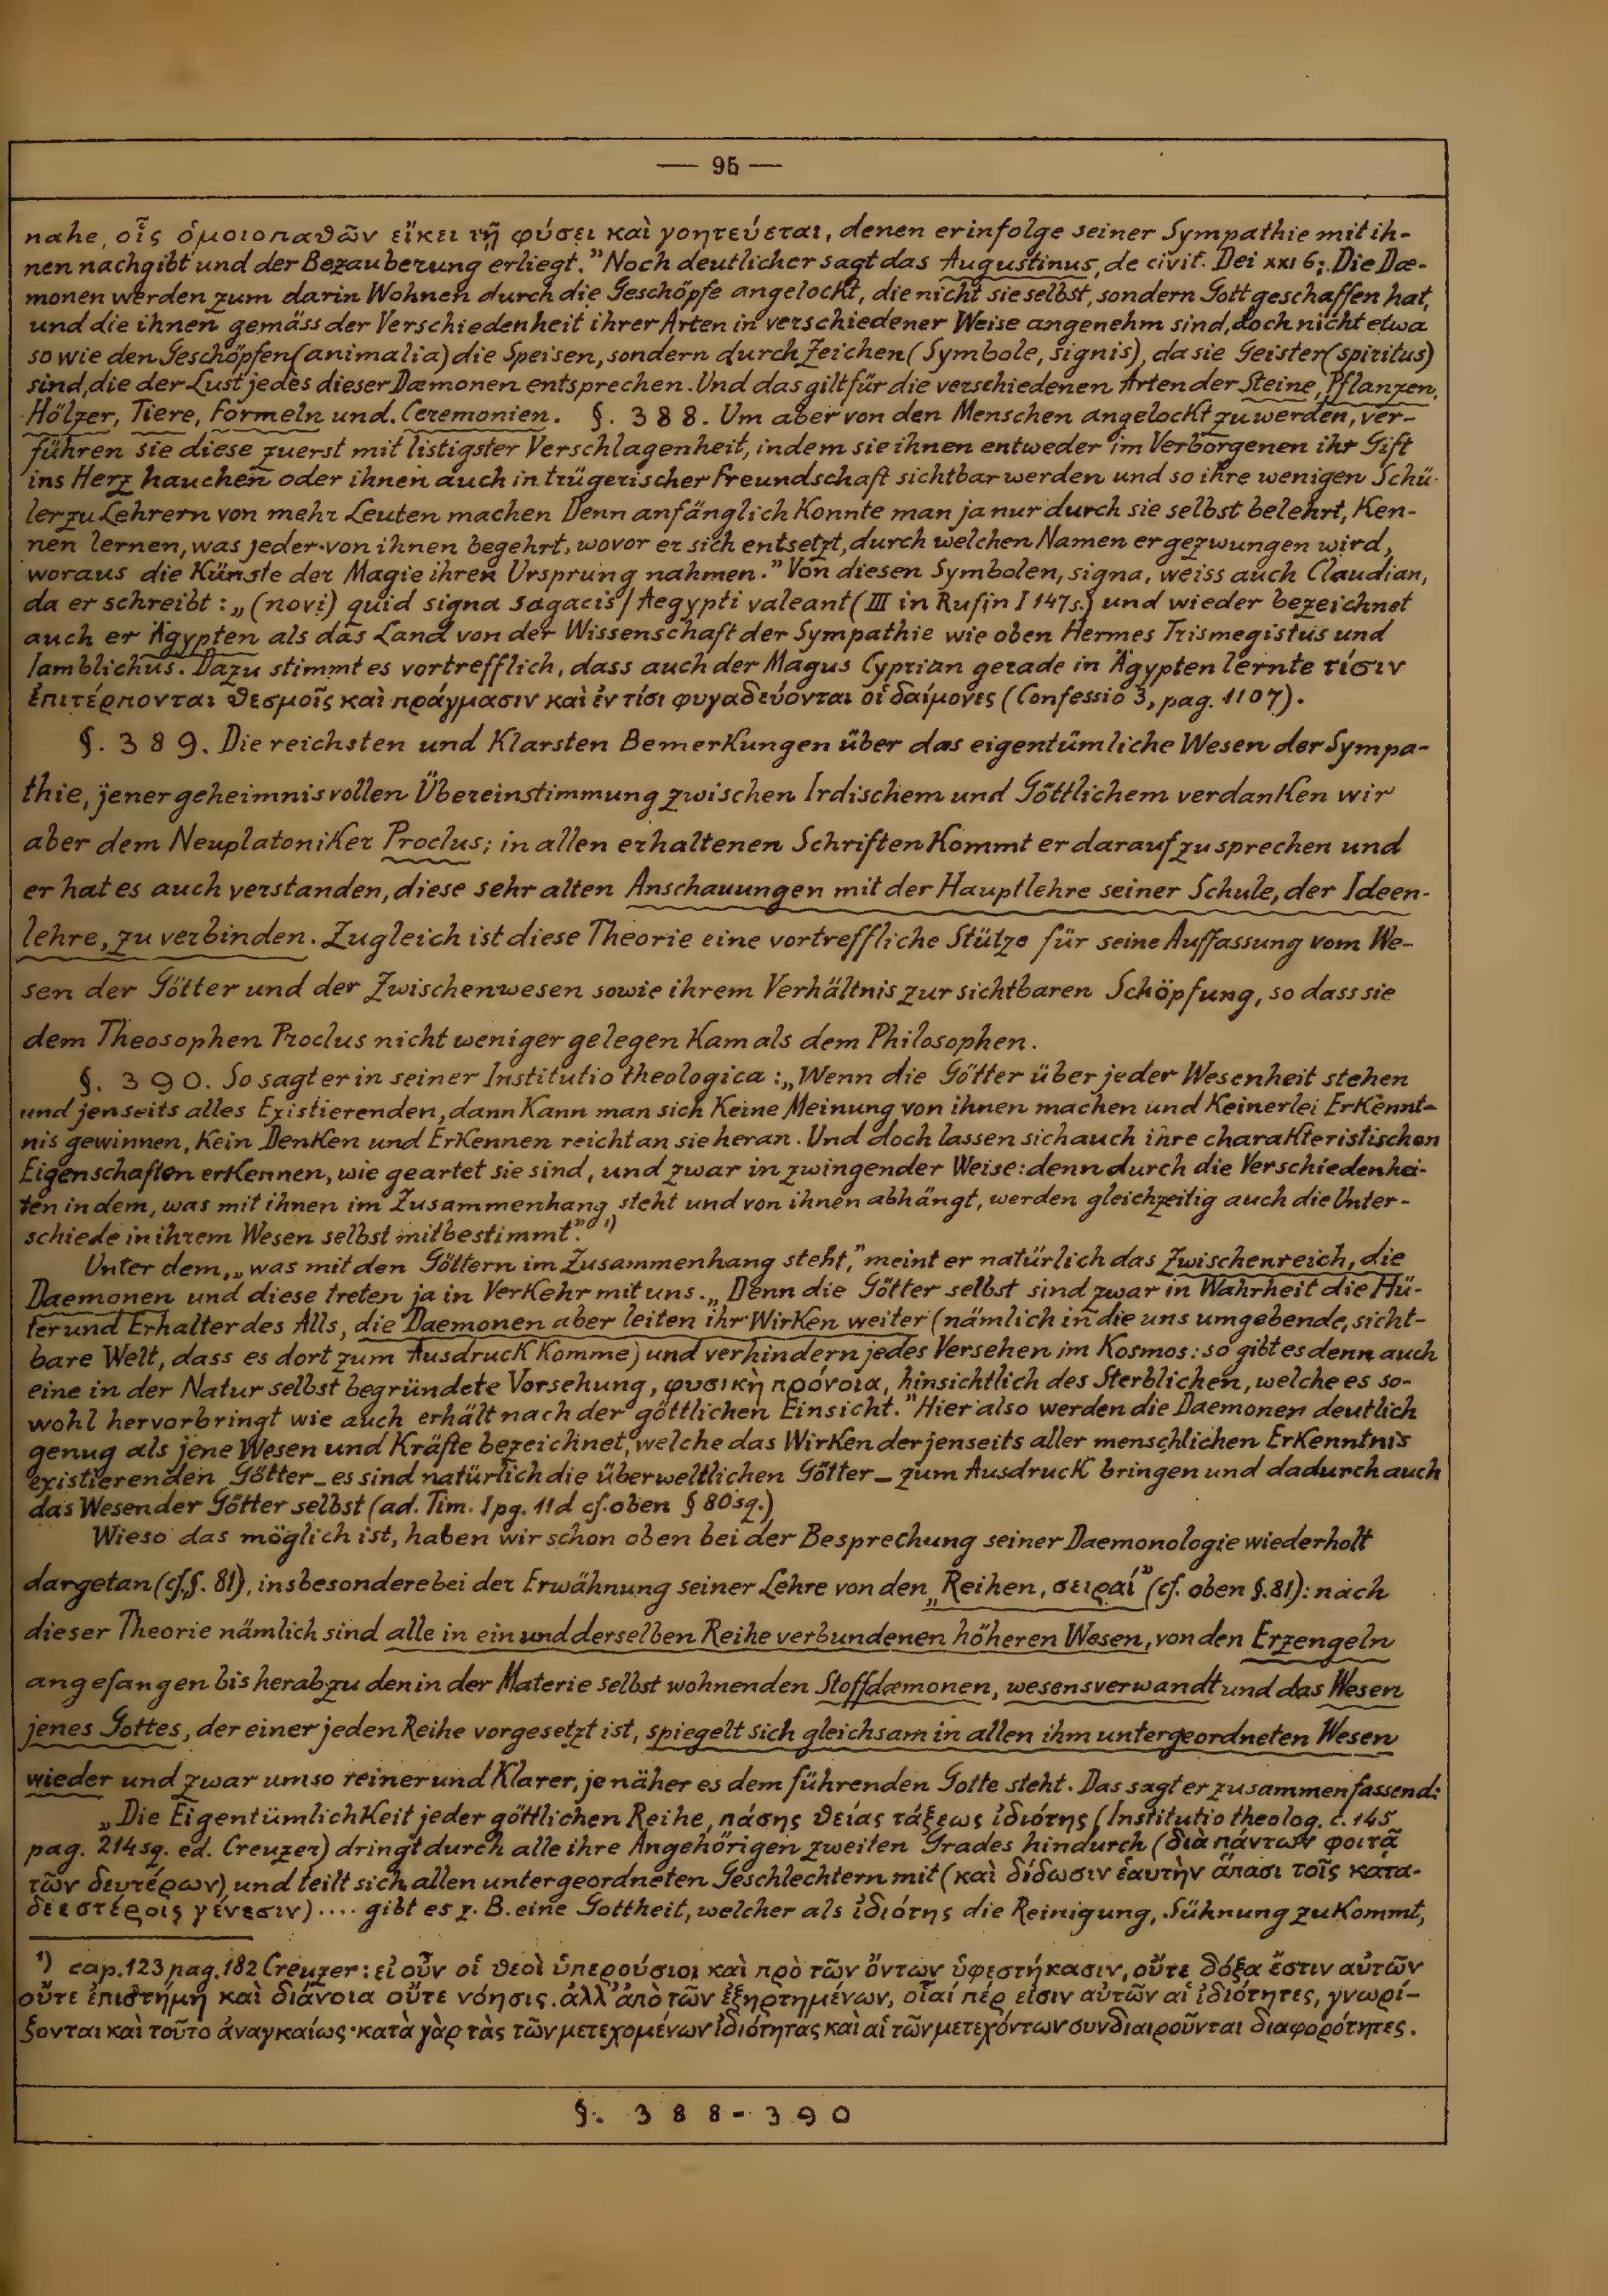 — 95 —
nahe, οἷς ὁμοιοπαθῶν εἴκει τῇ φύσει καὶ γοητεύεται, denen er infolge seiner Sympathie mit ih-
nen nachgibt und der Bezauberung erliegt.” Noch deutlicher sagt das Augustinus, de civit. Dei XXI 6: „Die Dæ-
monen werden zum darin Wohnen durch die Geschöpfe angelockt, die nicht sie selbst, sondern Gott geschaffen hat,
und die ihnen gemäss der Verschiedenheit ihrer Arten in verschiedener Weise angenehm sind, doch nicht etwa
so wie den Geschöpfen (animalia) die Speisen, sondern durch Zeichen (Symbole, signis), da sie Geister (spiritus)
sind, die der Lust jedes dieser Dæmonen entsprechen. Und das gilt für die verschiedenen Arten der Steine, Pflanzen,
Hölzer, Tiere, Formeln und Ceremonien. §. 388. Um aber von den Menschen angelockt zu werden, ver-
führen sie diese zuerst mit listigster Verschlagenheit, indem sie ihnen entweder im Verborgenen ihr Gift
ins Herz hauchen oder ihnen auch in trügerischer Freundschaft sichtbar werden und so ihre wenigen Schü-
ler zu Lehrern von mehr Leuten machen Denn anfänglich konnte man ja nur durch sie selbst belehrt, ken-
nen lernen, was jeder von ihnen begehrt, wovor er sich entsetzt, durch welchen Namen er gezwungen wird,
woraus die Künste der Magie ihren Ursprung nahmen.” Von diesen Symbolen, signa, weiss auch Claudian,
da er schreibt: „(novi) quid signa sagacis / Aegypti valeant (III in Rufin I 147s.) und wieder bezeichnet
auch er Ägypten als das Land von der Wissenschaft der Sympathie wie oben Hermes Trismegistus und
Iamblichus. Dazu stimmt es vortrefflich, dass auch der Magus Cyprian gerade in Ägypten lernte τίσιν
ἐπιτέρπονται θεσμοῖς καὶ πράγμασιν καὶ ἐν τίσι φυγαδεύονται οἱ δαίμονες (Confessio 3, pag. 1107).
§. 389. Die reichsten und klarsten Bemerkungen über das eigentümliche Wesen der Sympa-
thie, jener geheimnisvollen Übereinstimmung zwischen Irdischem und Göttlichem verdanken wir
aber dem Neuplatoniker Proclus; in allen erhaltenen Schriften kommt er darauf zu sprechen und
er hat es auch verstanden, diese sehr alten Anschauungen mit der Hauptlehre seiner Schule, der Ideen-
lehre, zu verbinden. Zugleich ist diese Theorie eine vortreffliche Stütze für seine Auffassung vom We-
sen der Götter und der Zwischenwesen sowie ihrem Verhältnis zur sichtbaren Schöpfung, so dass sie
dem Theosophen Proclus nicht weniger gelegen kam als dem Philosophen.
§. 390. So sagt er in seiner Institutio theologica: „Wenn die Götter über jeder Wesenheit stehen
und jenseits alles Existierenden, dann kann man sich keine Meinung von ihnen machen und keinerlei Erkennt-
nis gewinnen, kein Denken und Erkennen reicht an sie heran. Und doch lassen sich auch ihre charakteristischen
Eigenschaften erkennen, wie geartet sie sind, und zwar in zwingender Weise: denn durch die Verschiedenhei-
ten in dem, was mit ihnen im Zusammenhang steht und von ihnen abhängt, werden gleichzeitig auch die Unter-
schiede in ihrem Wesen selbst mitbestimmt.” ¹)
Unter dem, „was mit den Göttern im Zusammenhang steht,” meint er natürlich das Zwischenreich, die
Daemonen und diese treten ja in Verkehr mit uns. „Denn die Götter selbst sind zwar in Wahrheit die Hü-
ter und Erhalter des Alls, die Daemonen aber leiten ihr Wirken weiter (nämlich in die uns umgebende, sicht-
bare Welt, dass es dort zum Ausdruck komme) und verhindern jedes Versehen im Kosmos: so gibt es denn auch
eine in der Natur selbst begründete Vorsehung, φυσικὴ πρόνοια, hinsichtlich des Sterblichen, welche es so-
wohl hervorbringt wie auch erhält nach der göttlichen Einsicht.” Hier also werden die Daemonen deutlich
genug als jene Wesen und Kräfte bezeichnet, welche das Wirken der jenseits aller menschlichen Erkenntnis
existierenden Götter – es sind natürlich die überweltlichen Götter – zum Ausdruck bringen und dadurch auch
das Wesen der Götter selbst (ad. Tim. I pg. 11d cf. oben § 80sq.)
Wieso das möglich ist, haben wir schon oben bei der Besprechung seiner Daemonologie wiederholt
dargetan (cf. §. 81), insbesondere bei der Erwähnung seiner Lehre von den „Reihen, σειραί” (cf. oben §. 81): nach
dieser Theorie nämlich sind alle in ein und derselben Reihe verbundenen höheren Wesen, von den Erzengeln
angefangen bis herab zu den in der Materie selbst wohnenden Stoffdæmonen, wesensverwandt und das Wesen
jenes Gottes, der einer jeden Reihe vorgesetzt ist, spiegelt sich gleichsam in allen ihm untergeordneten Wesen
wieder und zwar umso reiner und klarer, je näher es dem führenden Gotte steht. Das sagt er zusammenfassend:
„Die Eigentümlichkeit jeder göttlichen Reihe, πάσης θείας τάξεως ἰδιότης (Institutio theolog. c. 145
pag. 214sq. ed. Creuzer) dringt durch alle ihre Angehörigen zweiten Grades hindurch (διὰ πάντων φοιτᾷ
τῶν δευτέρων) und teilt sich allen untergeordneten Geschlechtern mit (καὶ δίδωσιν ἑαυτὴν ἅπασι τοῖς κατα-
δεεστέροις γένεσιν) .... gibt es z. B. eine Gottheit, welcher als ἰδιότης die Reinigung, Sühnung zukommt,
¹) cap. 123 pag. 182 Creuzer: εἰ οὖν οἱ θεοὶ ὑπερούσιοι καὶ πρὸ τῶν ὄντων ὑφεστήκασιν, οὔτε δόξα ἔστιν αὐτῶν
οὔτε ἐπιστήμη καὶ διάνοια οὔτε νόησις. ἀλλ’ ἀπὸ τῶν ἐξηρτημένων, οἷαί πέρ εἰσιν αὐτῶν αἱ ἰδιότητες, γνωρί-
ζονται καὶ τοῦτο ἀναγκαίως· κατὰ γὰρ τὰς τῶν μετεχομένων ἰδιότητας καὶ αἱ τῶν μετεχόντων συνδιαιροῦνται διαφορότητες.
§. 388-390